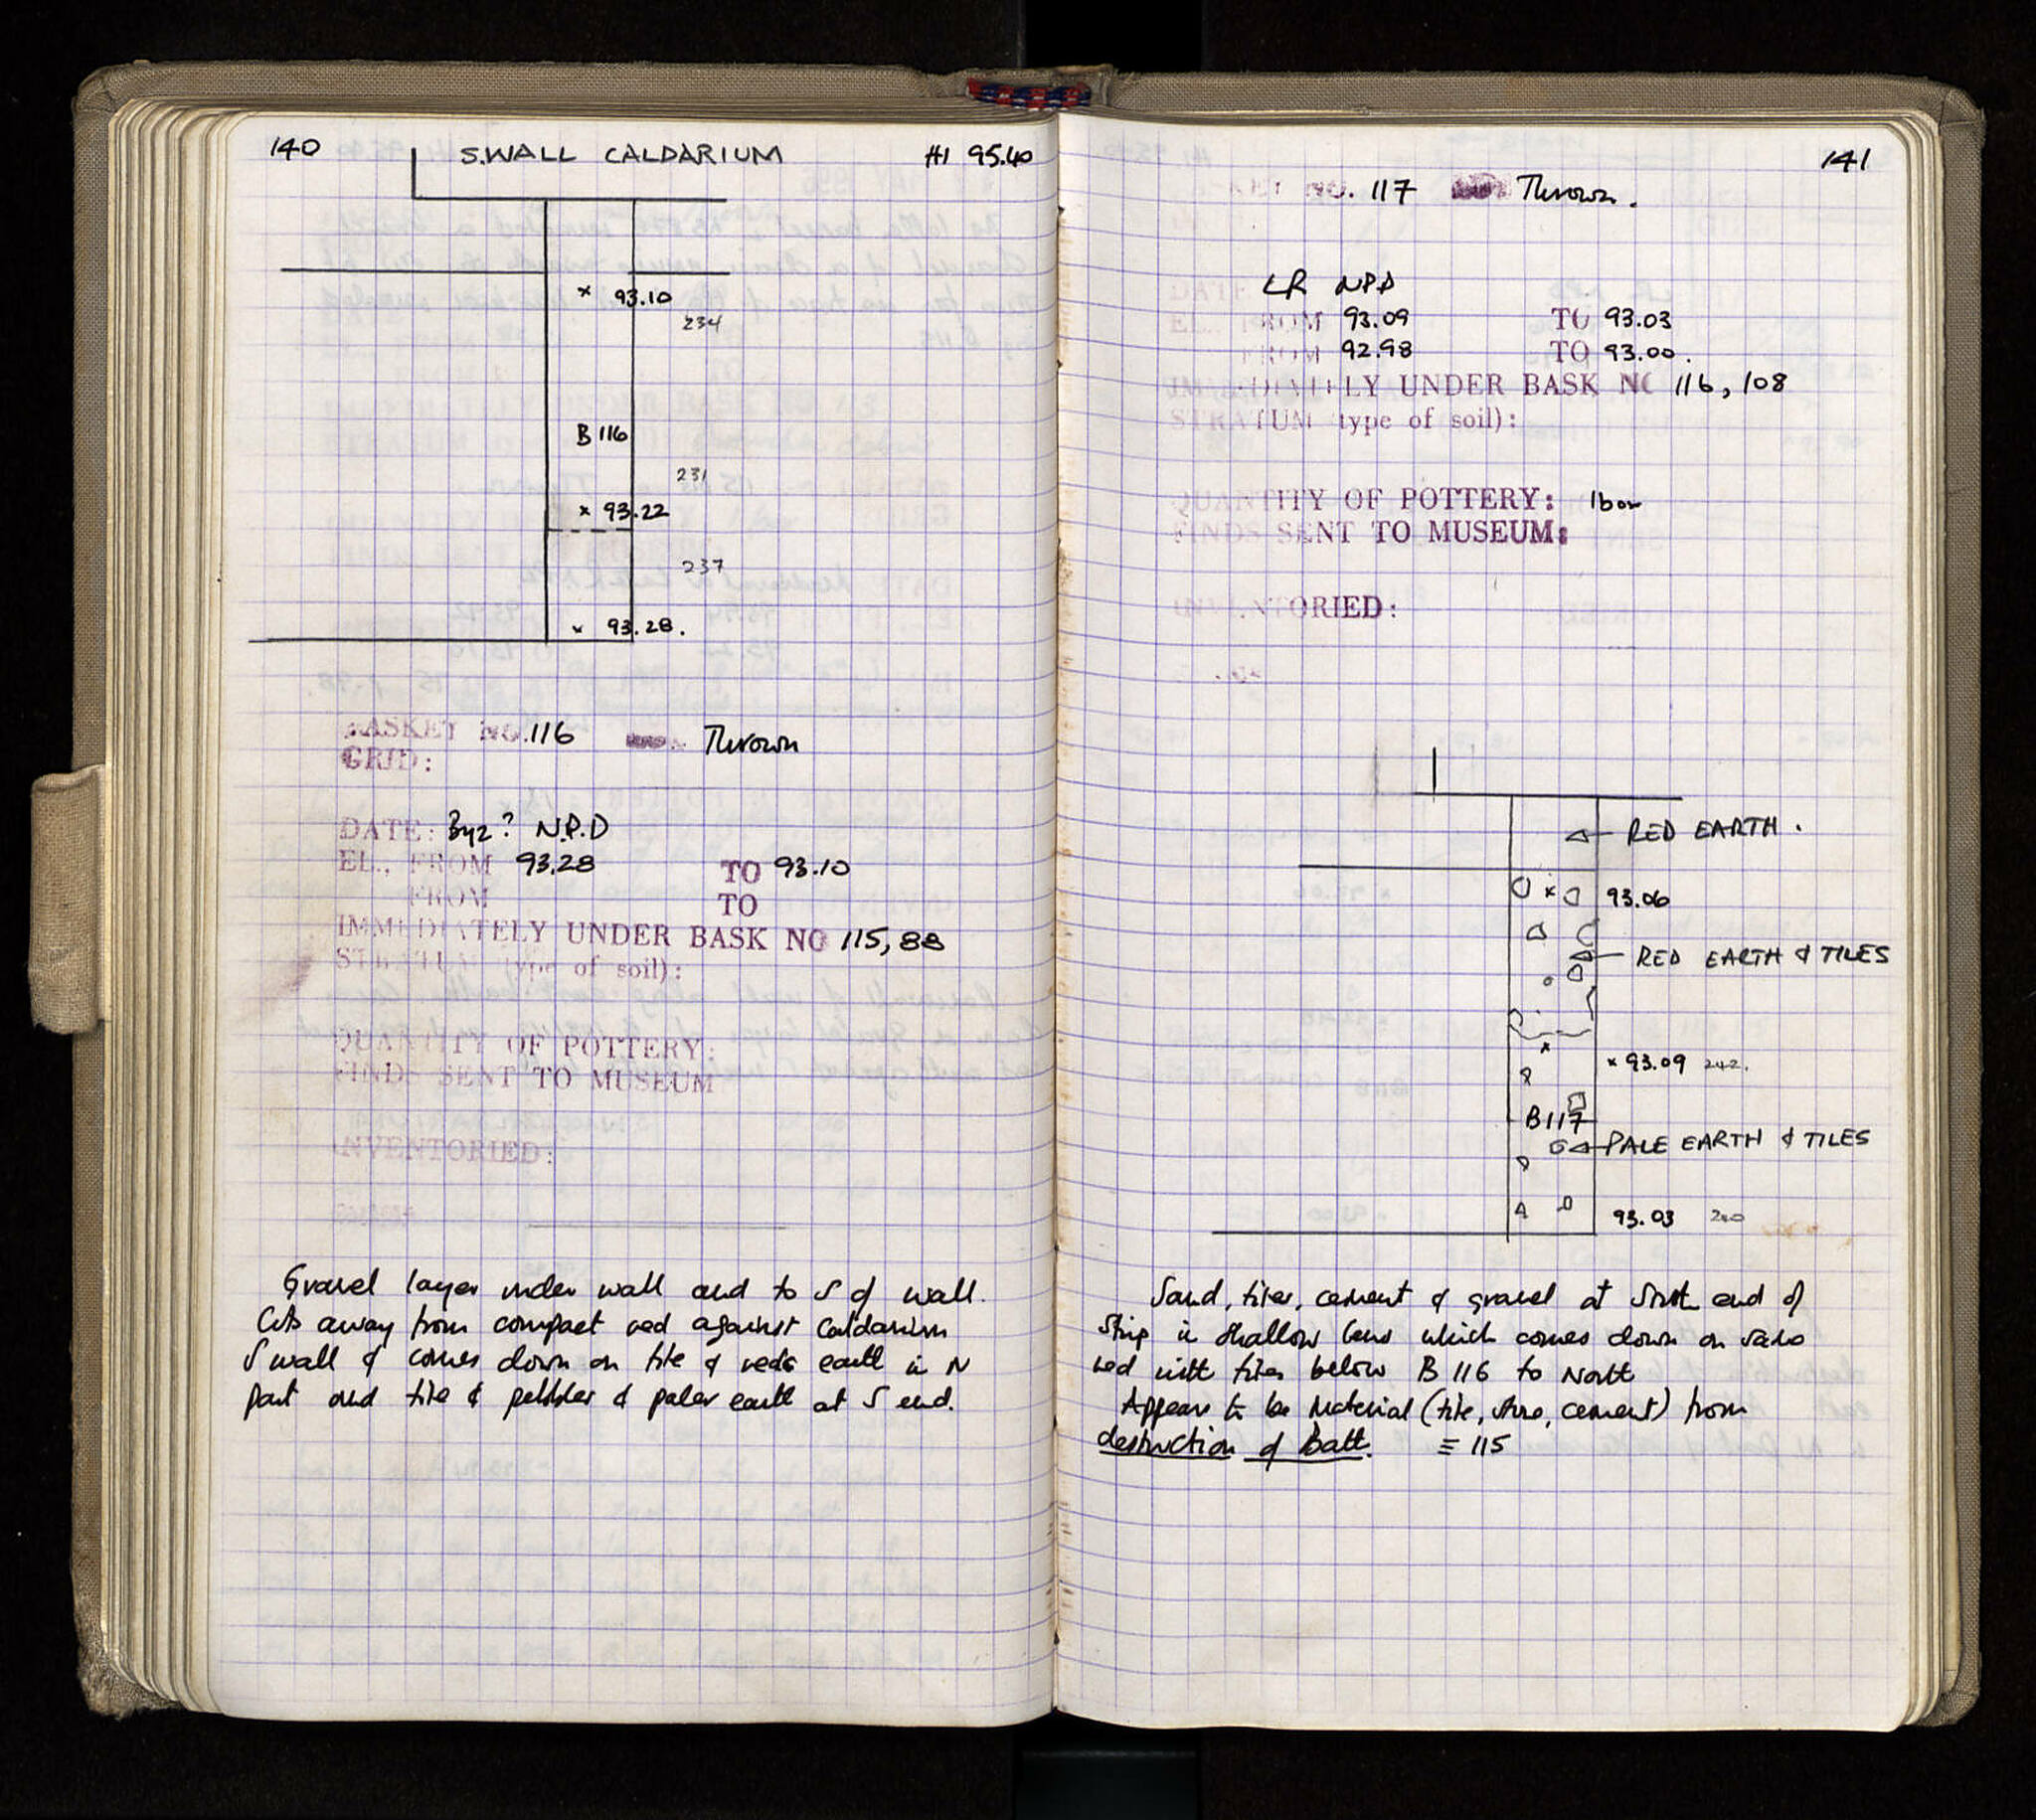 140 S.WALL CALDARIUM HI 95.40
× 93.10
234
B 116
231
× 93.22
237
× 93.28.
BASKET NO. 116 Thrown
GRID:
DATE: Byz? N.P.D
EL., FROM 93.28 TO 93.10
FROM TO
IMMEDIATELY UNDER BASK NO 115, 88
STRATUM (type of soil):
QUANTITY OF POTTERY:
FINDS SENT TO MUSEUM
INVENTORIED:
Gravel layer under wall and to S of wall.
Cuts away from compact red against Caldarium
S wall & comes down on tile & red earth in N
part and tile & pebbles & paler earth at S end.
141
BASKET NO. 117 Thrown.
DATE LR NPD
EL., FROM 93.09 TO 93.03
FROM 92.98 TO 93.00.
IMMEDIATELY UNDER BASK NO 116, 108
STRATUM (type of soil):
QUANTITY OF POTTERY: 1 box
FINDS SENT TO MUSEUM:
INVENTORIED:
RED EARTH.
× 93.06
RED EARTH & TILES
× 93.09 242.
B117
PALE EARTH & TILES
93.03 240
Sand, tiles, cement & gravel at South end of
strip in shallow lens which comes down on same
red with tiles below B 116 to North
Appears to be material (tile, stone, cement) from
destruction of Bath. ≡ 115